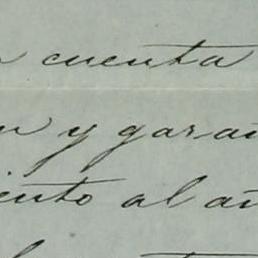 cuenta
y garan
iento al añ